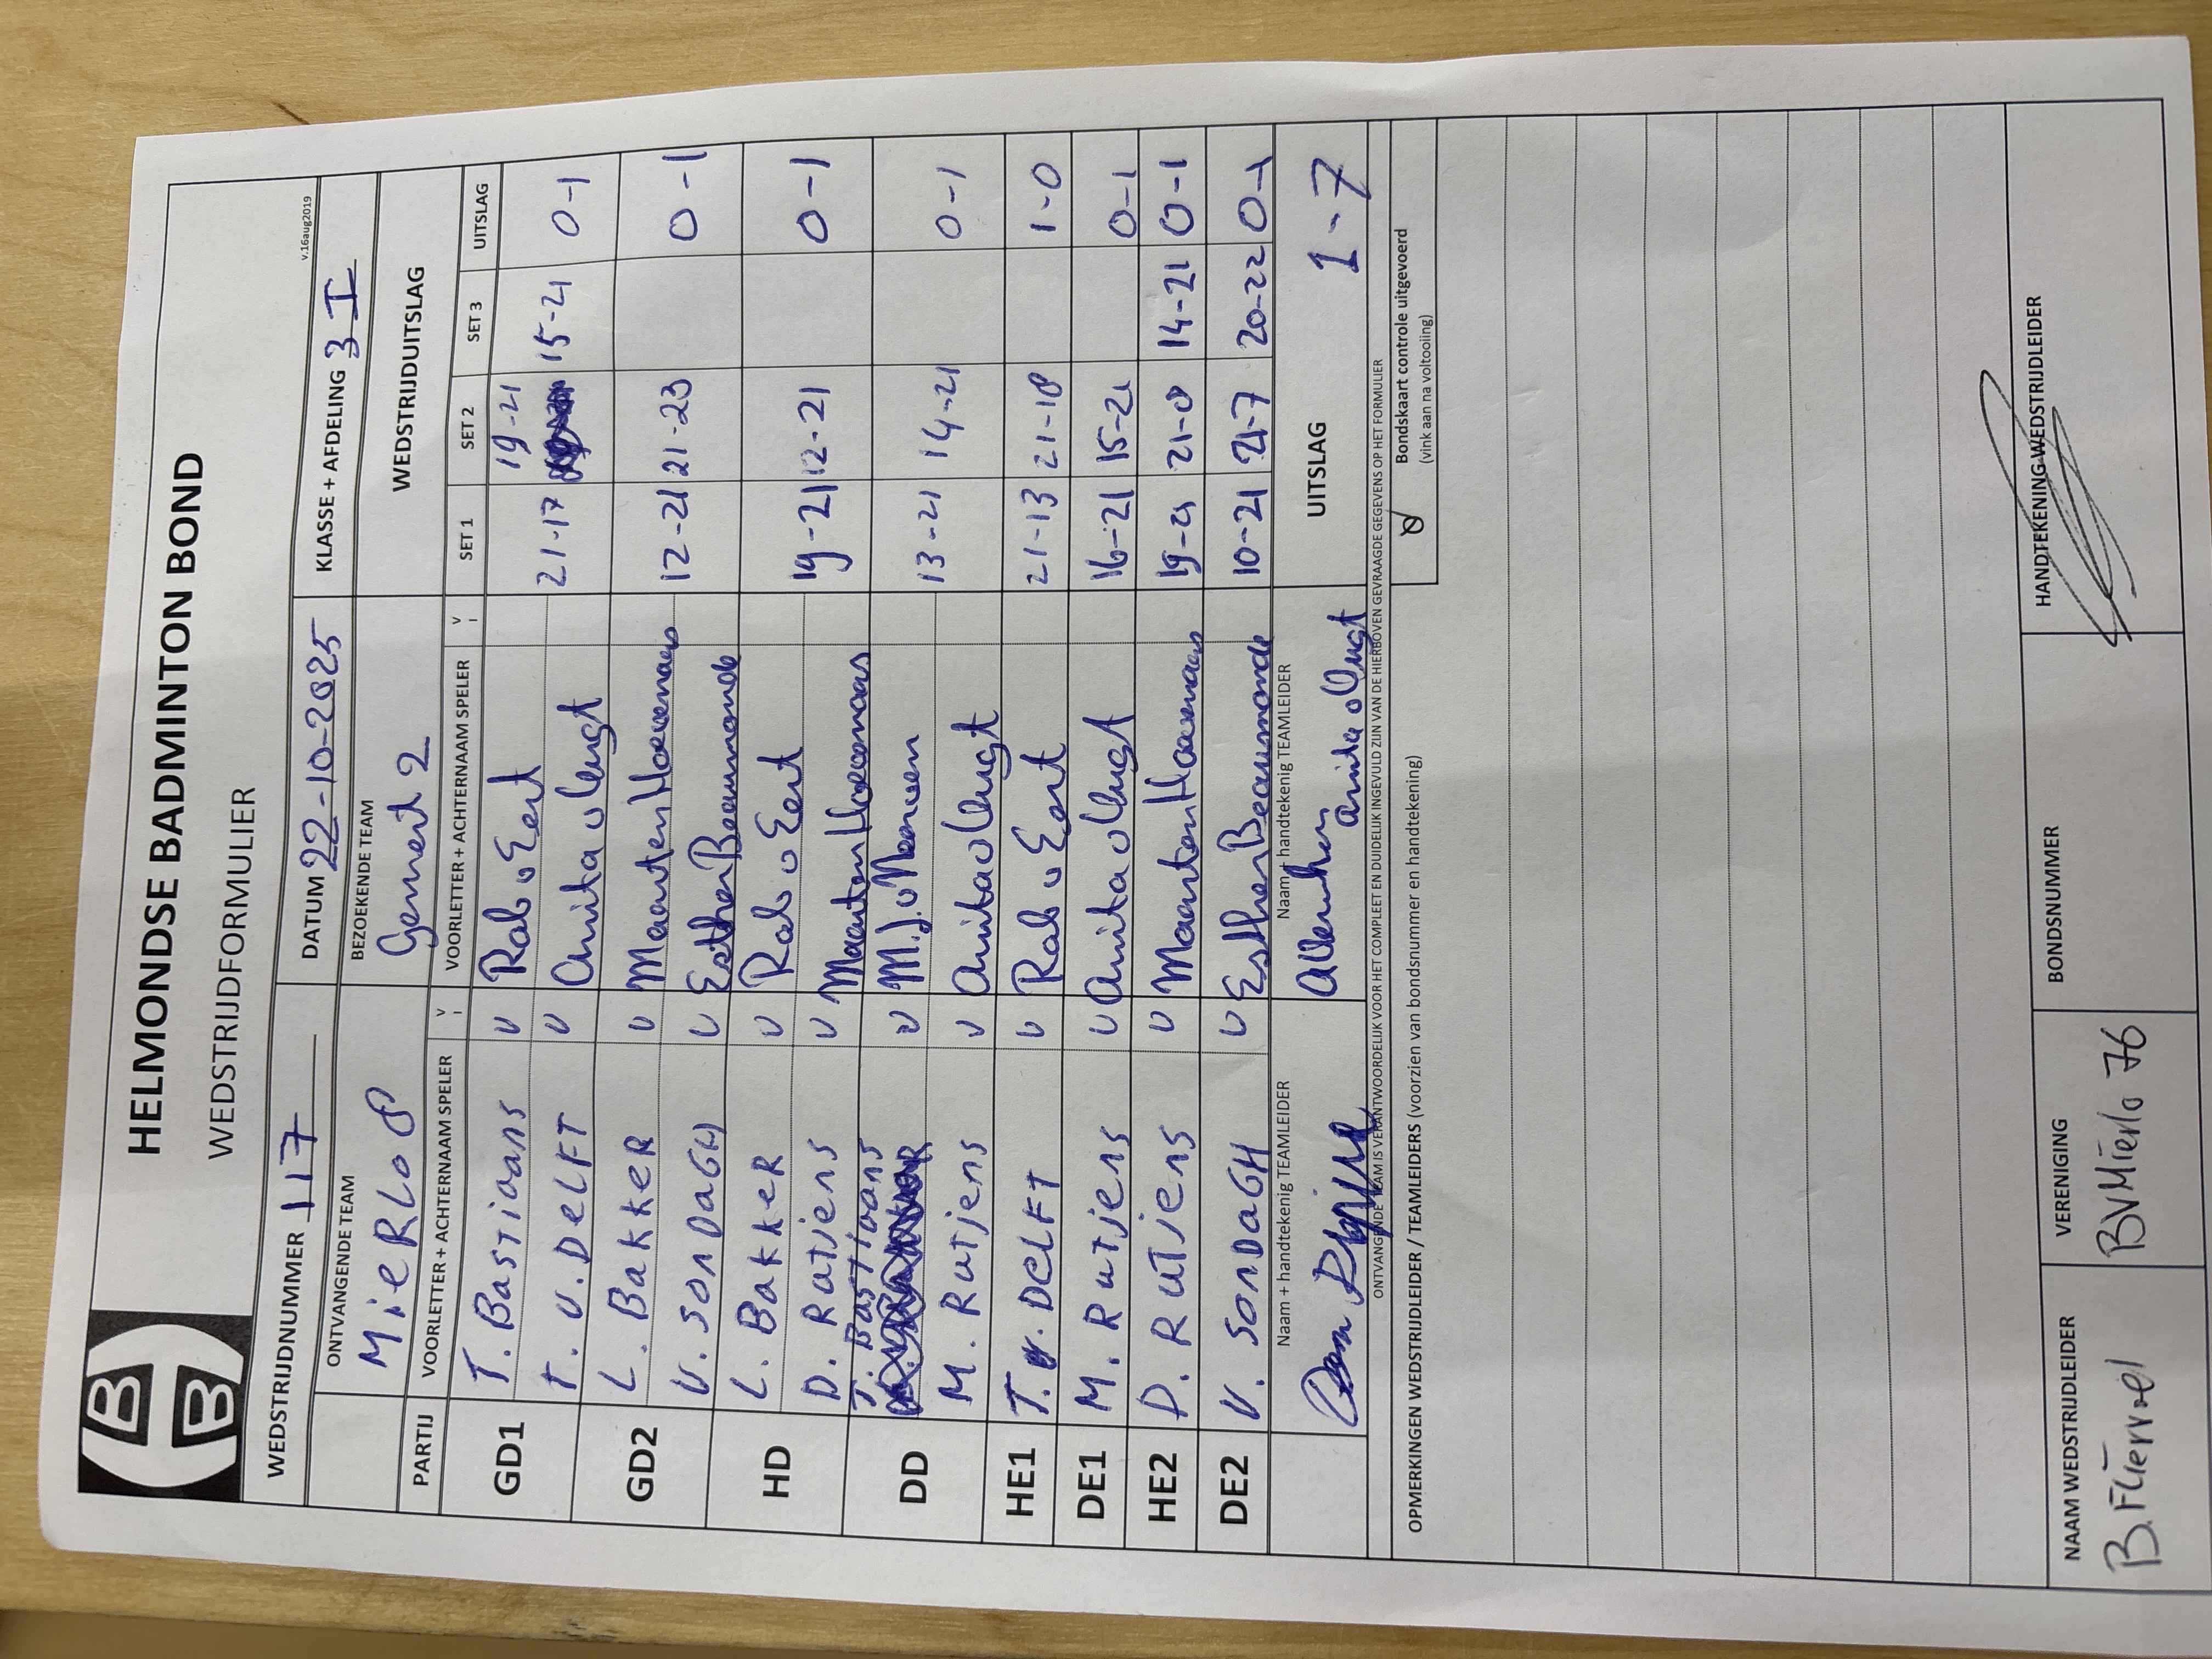 HELMONDSE BADMINTON BOND
WEDSTRIJDFORMULIER
v.16aug2019
WEDSTRIJDNUMMER 117 DATUM 22-10-2025 KLASSE + AFDELING 3 I
ONTVANGENDE TEAM BEZOEKENDE TEAM WEDSTRIJDUITSLAG
MieRLo 8 Gemert 2
PARTIJ VOORLETTER + ACHTERNAAM SPELER V I VOORLETTER + ACHTERNAAM SPELER V I SET 1 SET 2 SET 3 UITSLAG
GD1 T. Bastiaans v Rob v Eert 21-17 19-21 15-21 0-1
T. v. DeLFT v Anita v Vugt
GD2 L. BakkeR v Maarten Hoevenaars 12-21 21-23 0-1
V. SonDaGH v Esther Beaumonde
HD L. BakkeR v Rob v Eert 19-21 12-21 0-1
D. Rutjens v Maarten Hoevenaars
DD T. Bastiaans v M.J. v 13-21 14-21 0-1
M. Rutjens v Anita v Vugt
HE1 T. v. DeLFT v Rob v Eert 21-13 21-18 1-0
DE1 M. Rutjens v Anita v Vugt 16-21 15-21 0-1
HE2 D. RuTjens v Maarten Hoevenaars 19-21 21-8 14-21 0-1
DE2 V. SonDaGH v Esther Beaumonde 10-21 21-7 20-22 0-1
Naam + handtekenig TEAMLEIDER Naam + handtekenig TEAMLEIDER UITSLAG 1-7
Anita v Vugt
ONTVANGENDE TEAM IS VERANTWOORDELIJK VOOR HET COMPLEET EN DUIDELIJK INGEVULD ZIJN VAN DE HIERBOVEN GEVRAAGDE GEGEVENS OP HET FORMULIER
OPMERKINGEN WEDSTRIJDLEIDER / TEAMLEIDERS (voorzien van bondsnummer en handtekening)
Bondskaart controle uitgevoerd
(vink aan na voltooiing)
NAAM WEDSTRIJDLEIDER VERENIGING BONDSNUMMER HANDTEKENING WEDSTRIJDLEIDER
BVMierlo 76